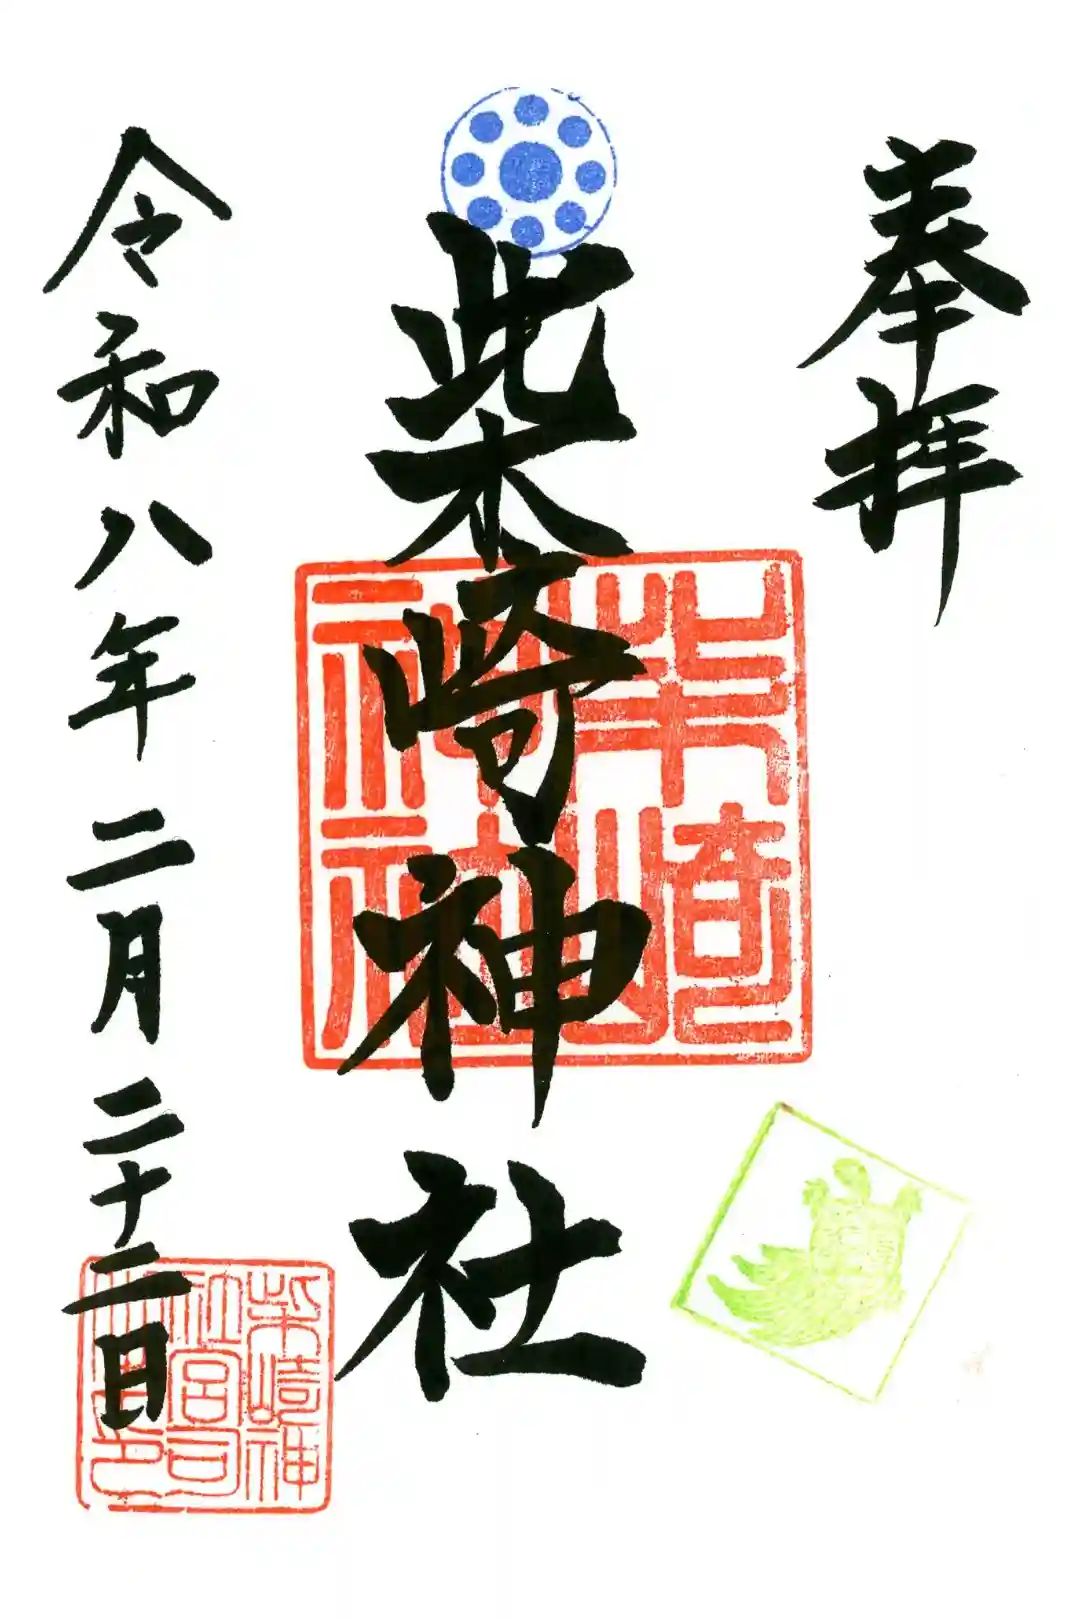 奉拝
柴崎神社
令和八年二月二十二日
柴崎神社
柴崎神社宮司之印